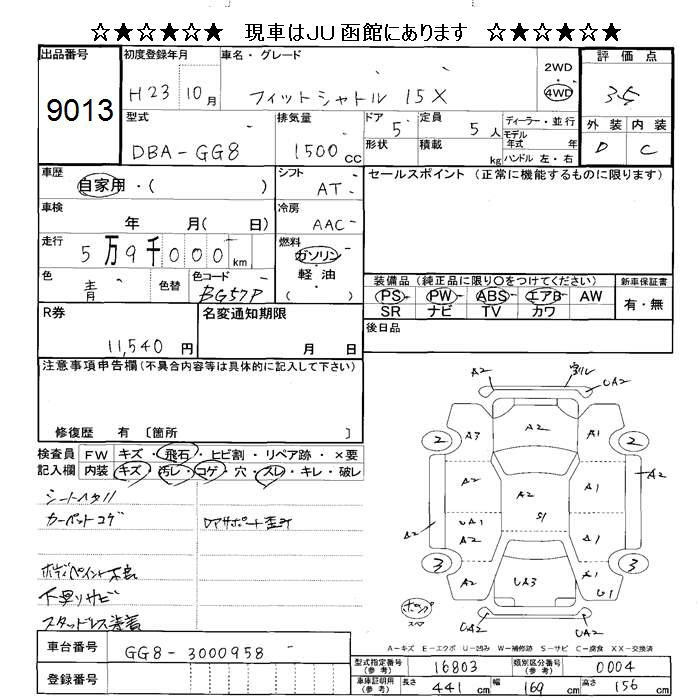 ☆★☆★☆ 現車はJU函館にあります ☆★☆★☆
出品番号 初度登録年月 車名・グレード 2WD 評価点
9013 H23 10月 フィットシャトル 15X 4WD 3.5
型式 排気量 ドア 定員 ディーラー・並行 外装 内装
DBA-GG8 1500cc 5 5人 モデル年式 年 D C
形状 積載 kg ハンドル 左・右
車歴 シフト セールスポイント (正常に機能するものに限ります)
自家用・( ) AT
車検 冷房
年 月( 日) AAC
走行 燃料
5万9千000km ガソリン
軽油
( )
色 色替 色コード
青 BG57P
装備品 (純正品に限り○をつけてください) 新車保証書
PS PW ABS エアB AW 有・無
SR ナビ TV カワ
R券 名変通知期限 後日品
11,540円 月 日
注意事項申告欄(不具合内容等は具体的に記入して下さい)
修復歴 有 〔箇所 〕
検査員 FW キズ・飛石・ヒビ割・リペア跡・×要
記入欄 内装 キズ・汚レ・コゲ・穴・スレ・キレ・破レ
シートヘタリ
カーペットコゲ
ボディペイント不良
下廻りサビ
スタッドレス装着
A2 UA2
A2
A3 A1
2 2
A2 A2 A1 A2
UA1 S1
A2 A2 A1
3 3
A2 UA3 A1
U1
UA2 UA2
A-キズ E-エクボ U-凹み W-補修跡 S-サビ C-腐食 XX-交換済
車台番号 GG8-3000958
登録番号
型式指定番号(参考) 16803 類別区分番号(参考) 0004
車庫証明用(参考) 長さ 441cm 幅 169cm 高さ 156cm